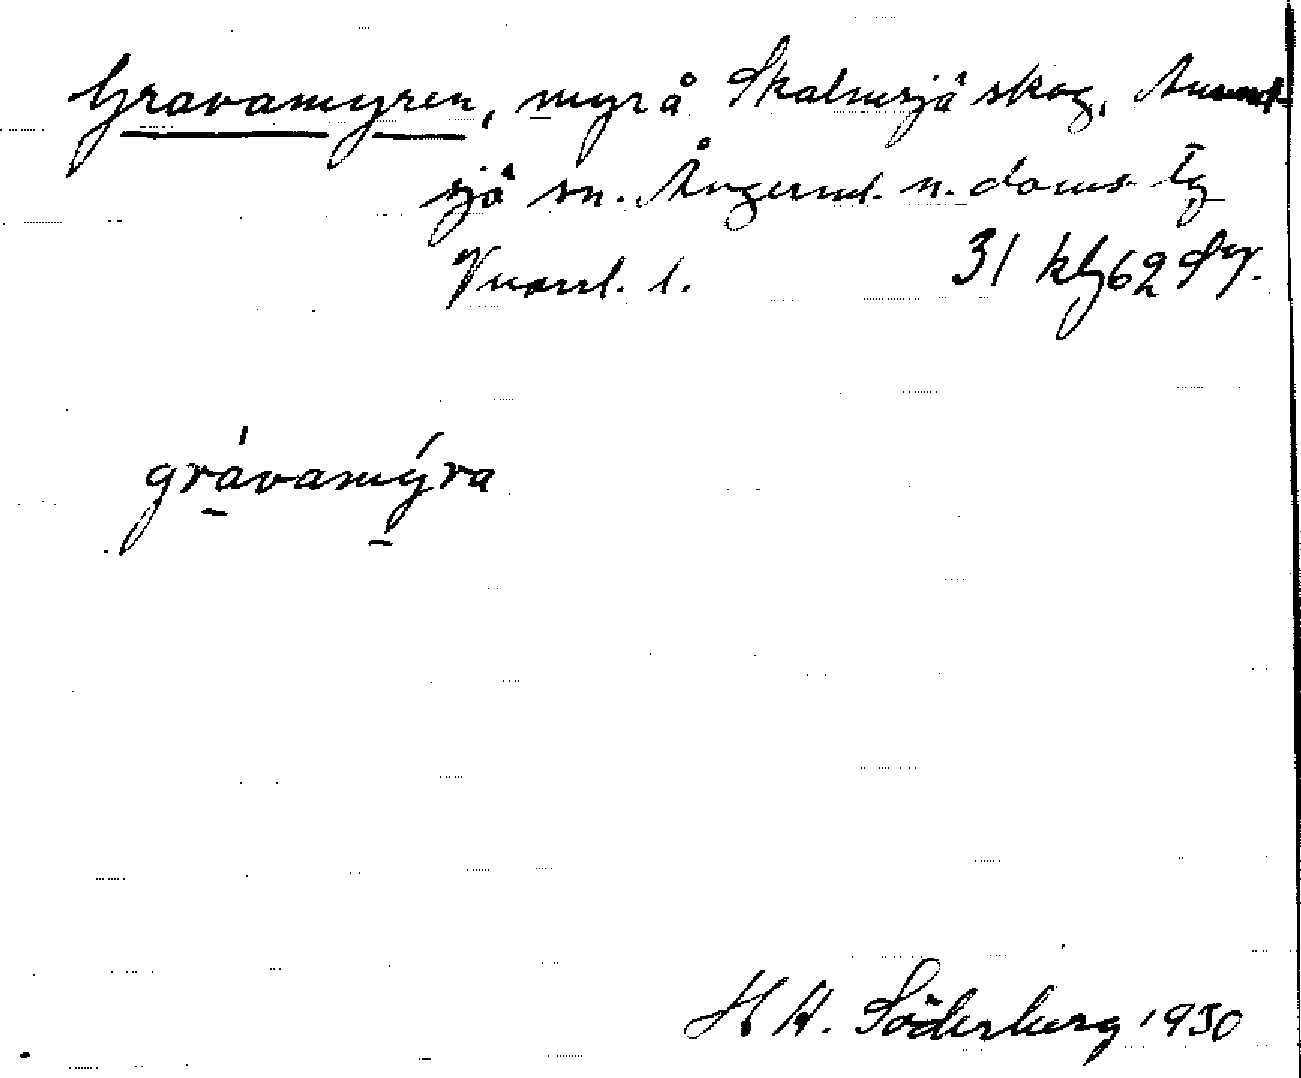 Gravamyren, myr å Skalmsjö skog, Anund-
sjö sn. Ångermd. n. doms. tg
Vnorrl. l. 31 kbl 62 Sv.
gràvamýra
H A. Söderberg 1930